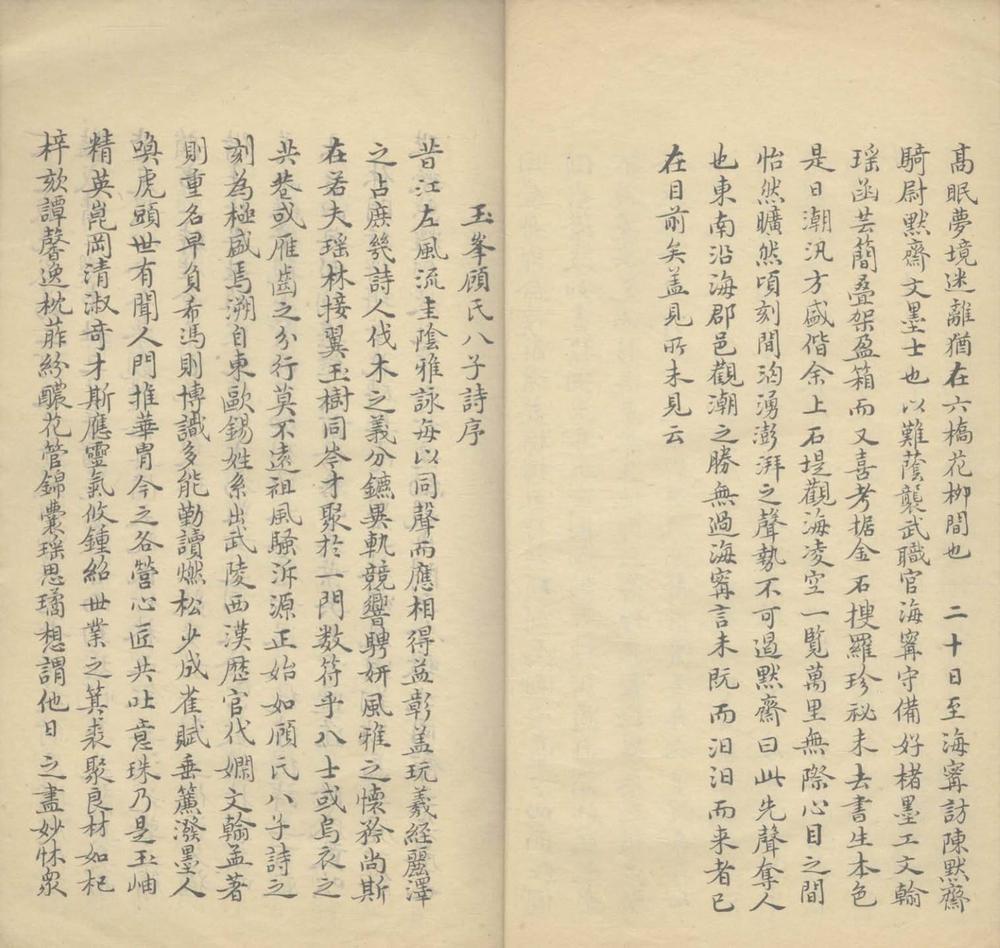 高眠夢境迷離猶在六橋花柳間也　二十日至海寧訪陳默齋
騎尉默齋文墨士也以難蔭襲武職官海寧守備好楮墨工文翰
瑶函芸簡疊架盈箱而又喜考据金石搜羅珍祕未去書生本色
是日潮汛方盛偕余上石堤觀海凌空一覽萬里無際心目之間
怡然曠然頃刻間洶湧澎湃之聲勢不可過默齋曰此先聲奪人
也東南沿海郡邑觀潮之勝無過海寧言未既而汩汩而来者已
在目前矣盖見所未見云
玉峯顧氏八子詩序
昔江左風流圭陰雅詠每以同聲而應相得益彰盖玩羲經麗澤
之占庶幾詩人伐木之義分鑣異軌競響騁妍風雅之懷矜尚斯
在若夫瑶林接翼玉樹同岑才聚於一門数符乎八士或烏衣之
共巷或雁齒之分行莫不遠祖風騷泝源正始如顧氏八子詩之
刻為極盛焉溯自東歐錫姓系出武陵西漢歷官代嫻文翰孟著
則重名早負希馮則博識多能勤讀燃松少成雀賦垂簾潑墨人
喚虎頭世有聞人門推華胄今之各營心匠共吐意珠乃是玉岫
精英崑岡清淑奇才斯應靈氣攸鍾紹世業之箕裘聚良材如杞
梓欬譚馨逸枕葄紛醲花管錦囊瑶思璚想謂他日之盡妙恘衆